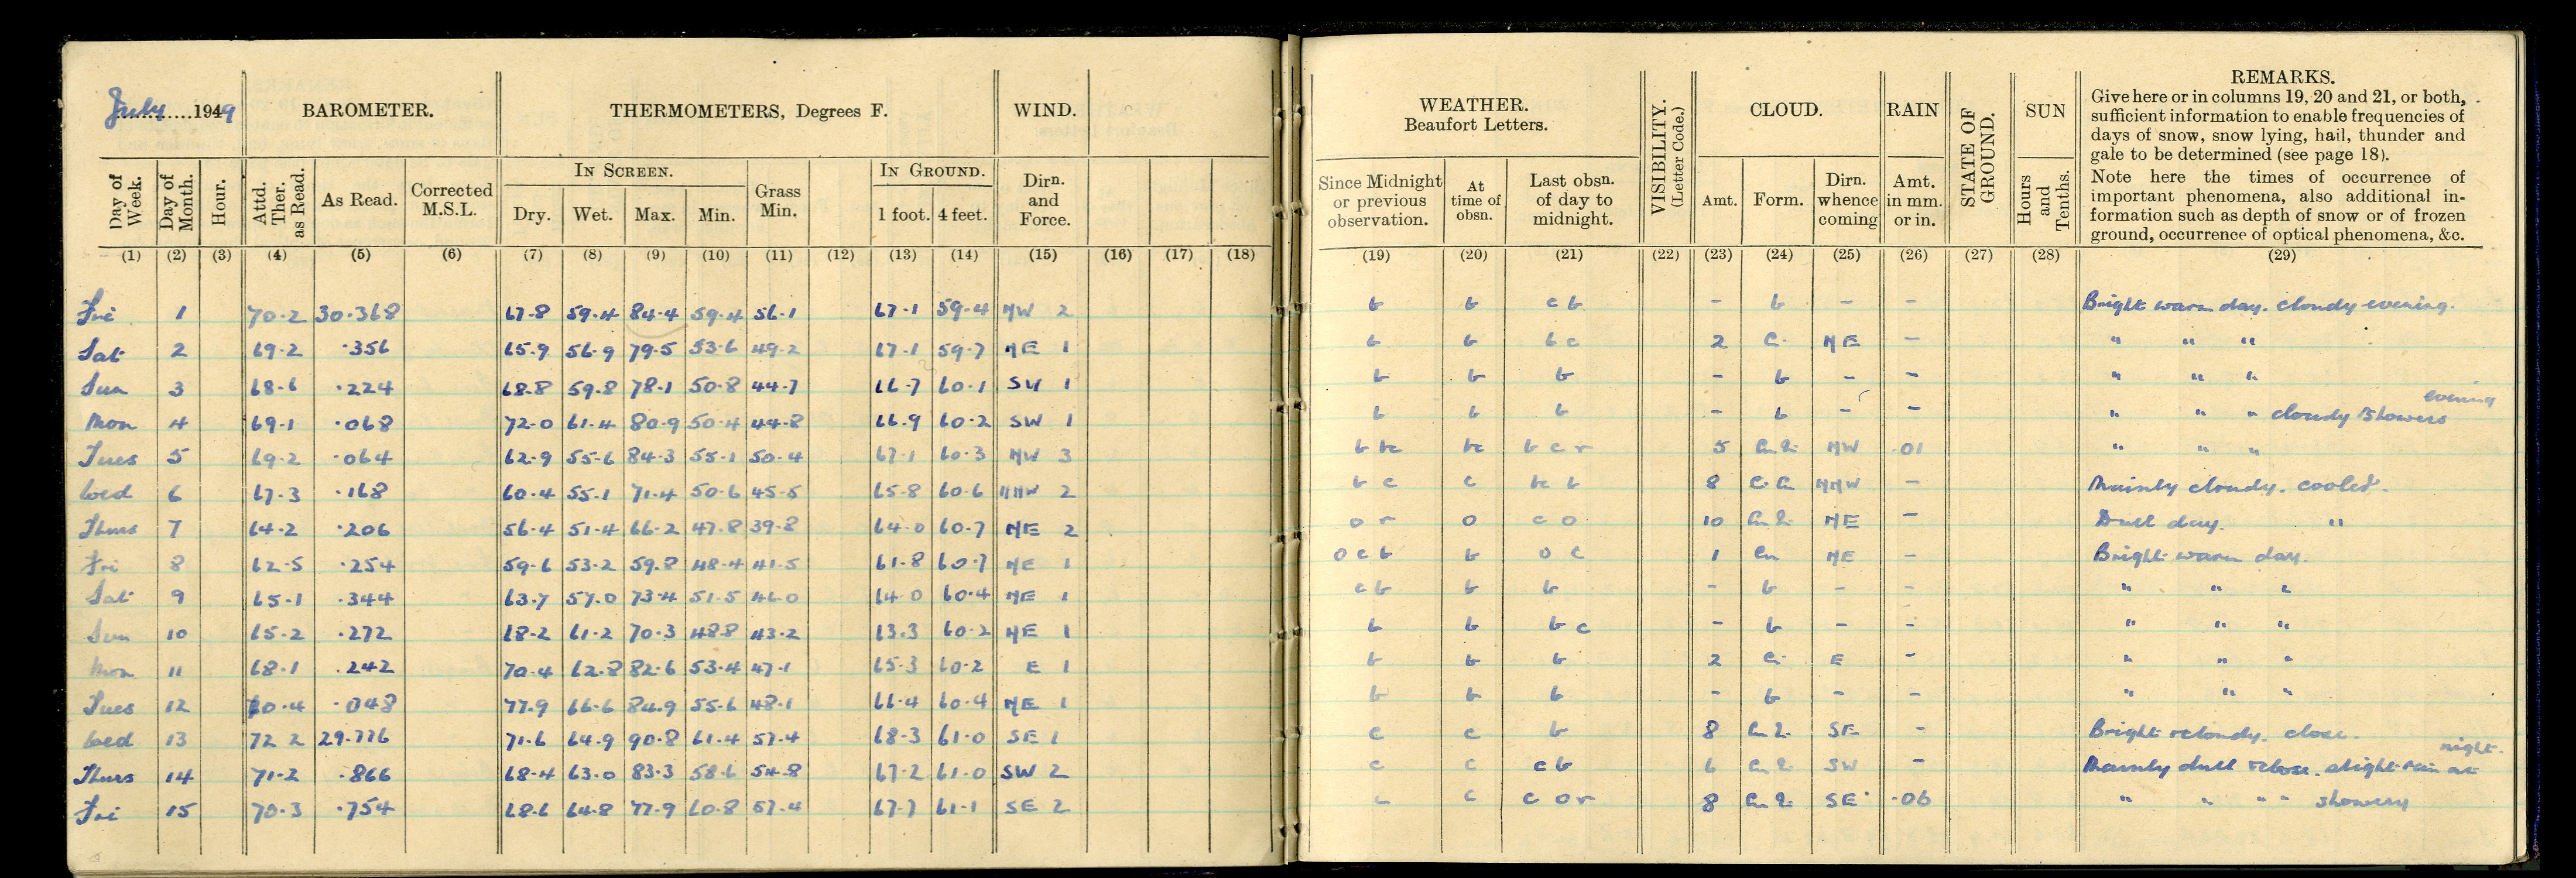 July 1949 BAROMETER. THERMOMETERS, Degrees F. WIND.
Day of Week. Day of Month. Hour. Attd. Ther. as Read. As Read. Corrected M.S.L. IN SCREEN. Dry. Wet. Max. Min. Grass Min. IN GROUND. 1 foot. 4 feet. Dirn. and Force.
(1) (2) (3) (4) (5) (6) (7) (8) (9) (10) (11) (12) (13) (14) (15) (16) (17) (18)
Fri 1 70.2 30.368 67.8 59.4 84.4 59.4 56.1 67.1 59.4 NW 2
Sat 2 69.2 .356 65.9 56.9 79.5 53.6 49.2 67.1 59.7 NE 1
Sun 3 68.6 .224 68.8 59.8 78.1 50.8 44.7 66.7 60.1 SW 1
Mon 4 69.1 .068 72.0 61.4 80.9 50.4 44.8 66.9 60.2 SW 1
Tues 5 69.2 .064 62.9 55.6 84.3 55.1 50.4 67.1 60.3 NW 3
Wed 6 67.3 .168 60.4 55.1 71.4 50.6 45.5 65.8 60.6 NNW 2
Thurs 7 64.2 .206 56.4 51.4 66.2 47.8 39.8 64.0 60.7 NE 2
Fri 8 62.5 .254 59.6 53.2 59.8 48.4 41.5 61.8 60.7 NE 1
Sat 9 65.1 .344 63.7 57.0 73.4 51.5 46.0 64.0 60.4 NE 1
Sun 10 65.2 .272 68.2 61.2 70.3 48.8 43.2 63.3 60.2 NE 1
Mon 11 68.1 .242 70.4 62.8 82.6 53.4 47.1 65.3 60.2 E 1
Tues 12 70.4 .048 77.9 66.6 84.9 55.6 48.1 66.4 60.4 NE 1
Wed 13 72 2 29.776 71.6 64.9 90.8 61.4 57.4 68.3 61.0 SE 1
Thurs 14 71.2 .866 68.4 63.0 83.3 58.6 54.8 67.2 61.0 SW 2
Fri 15 70.3 .754 68.6 64.8 77.9 60.8 57.4 67.7 61.1 SE 2
WEATHER. Beaufort Letters. VISIBILITY. (Letter Code.) CLOUD. RAIN STATE OF GROUND. SUN REMARKS.
Give here or in columns 19, 20 and 21, or both,
sufficient information to enable frequencies of
days of snow, snow lying, hail, thunder and
gale to be determined (see page 18).
Note here the times of occurrence of
important phenomena, also additional in-
formation such as depth of snow or of frozen
ground, occurrence of optical phenomena, &c.
Since Midnight or previous observation. At time of obsn. Last obsn. of day to midnight. Amt. Form. Dirn. whence coming Amt. in mm. or in. Hours and Tenths.
(19) (20) (21) (22) (23) (24) (25) (26) (27) (28) (29)
b b c b - b - - Bright warm day. cloudy evening.
b b b c 2 Ci NE - " " "
b b b - b - - " " "
b b b - b - - " " " cloudy & showers evening
b bc bc b c r 5 NW .01 " " "
b c c bc b 8 NNW - Mainly cloudy. cooler.
o r o c o 10 NE - Dull day. "
o c b b o c 1 Cu NE - Bright warm day.
c b b b - b - - " " "
b b b c - b - - " " "
b b b 2 Ci E - " " "
b b b - b - - " " "
c c b 8 SE - Bright & cloudy. close.
c c c b 6 SW - Mainly dull & close. slight rain at night.
c c o r 8 SE .06 " " " " showery